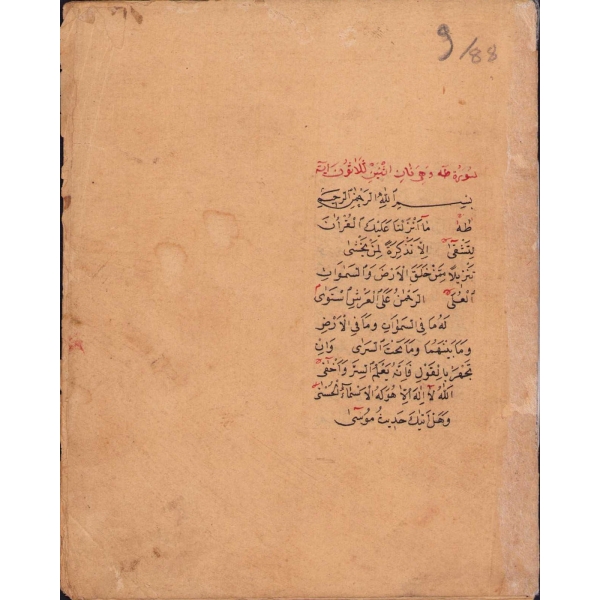 9/88
سورة طه وهى مائة اثنين ثلاثون اية
بسم الله الرحمن الرحيم
طه ما انزلنا عليك القران
لتشقى الا تذكرة لمن يخشى
تنزيلا ممن خلق الارض والسموات
العلى الرحمن على العرش استوى
له ما فى السموات وما فى الارض
وما بينهما وما تحت الثرى وان
تجهر بالقول فانه يعلم السر واخفى
الله لا اله الا هو له الاسماء الحسنى
وهل اتيك حديث موسى